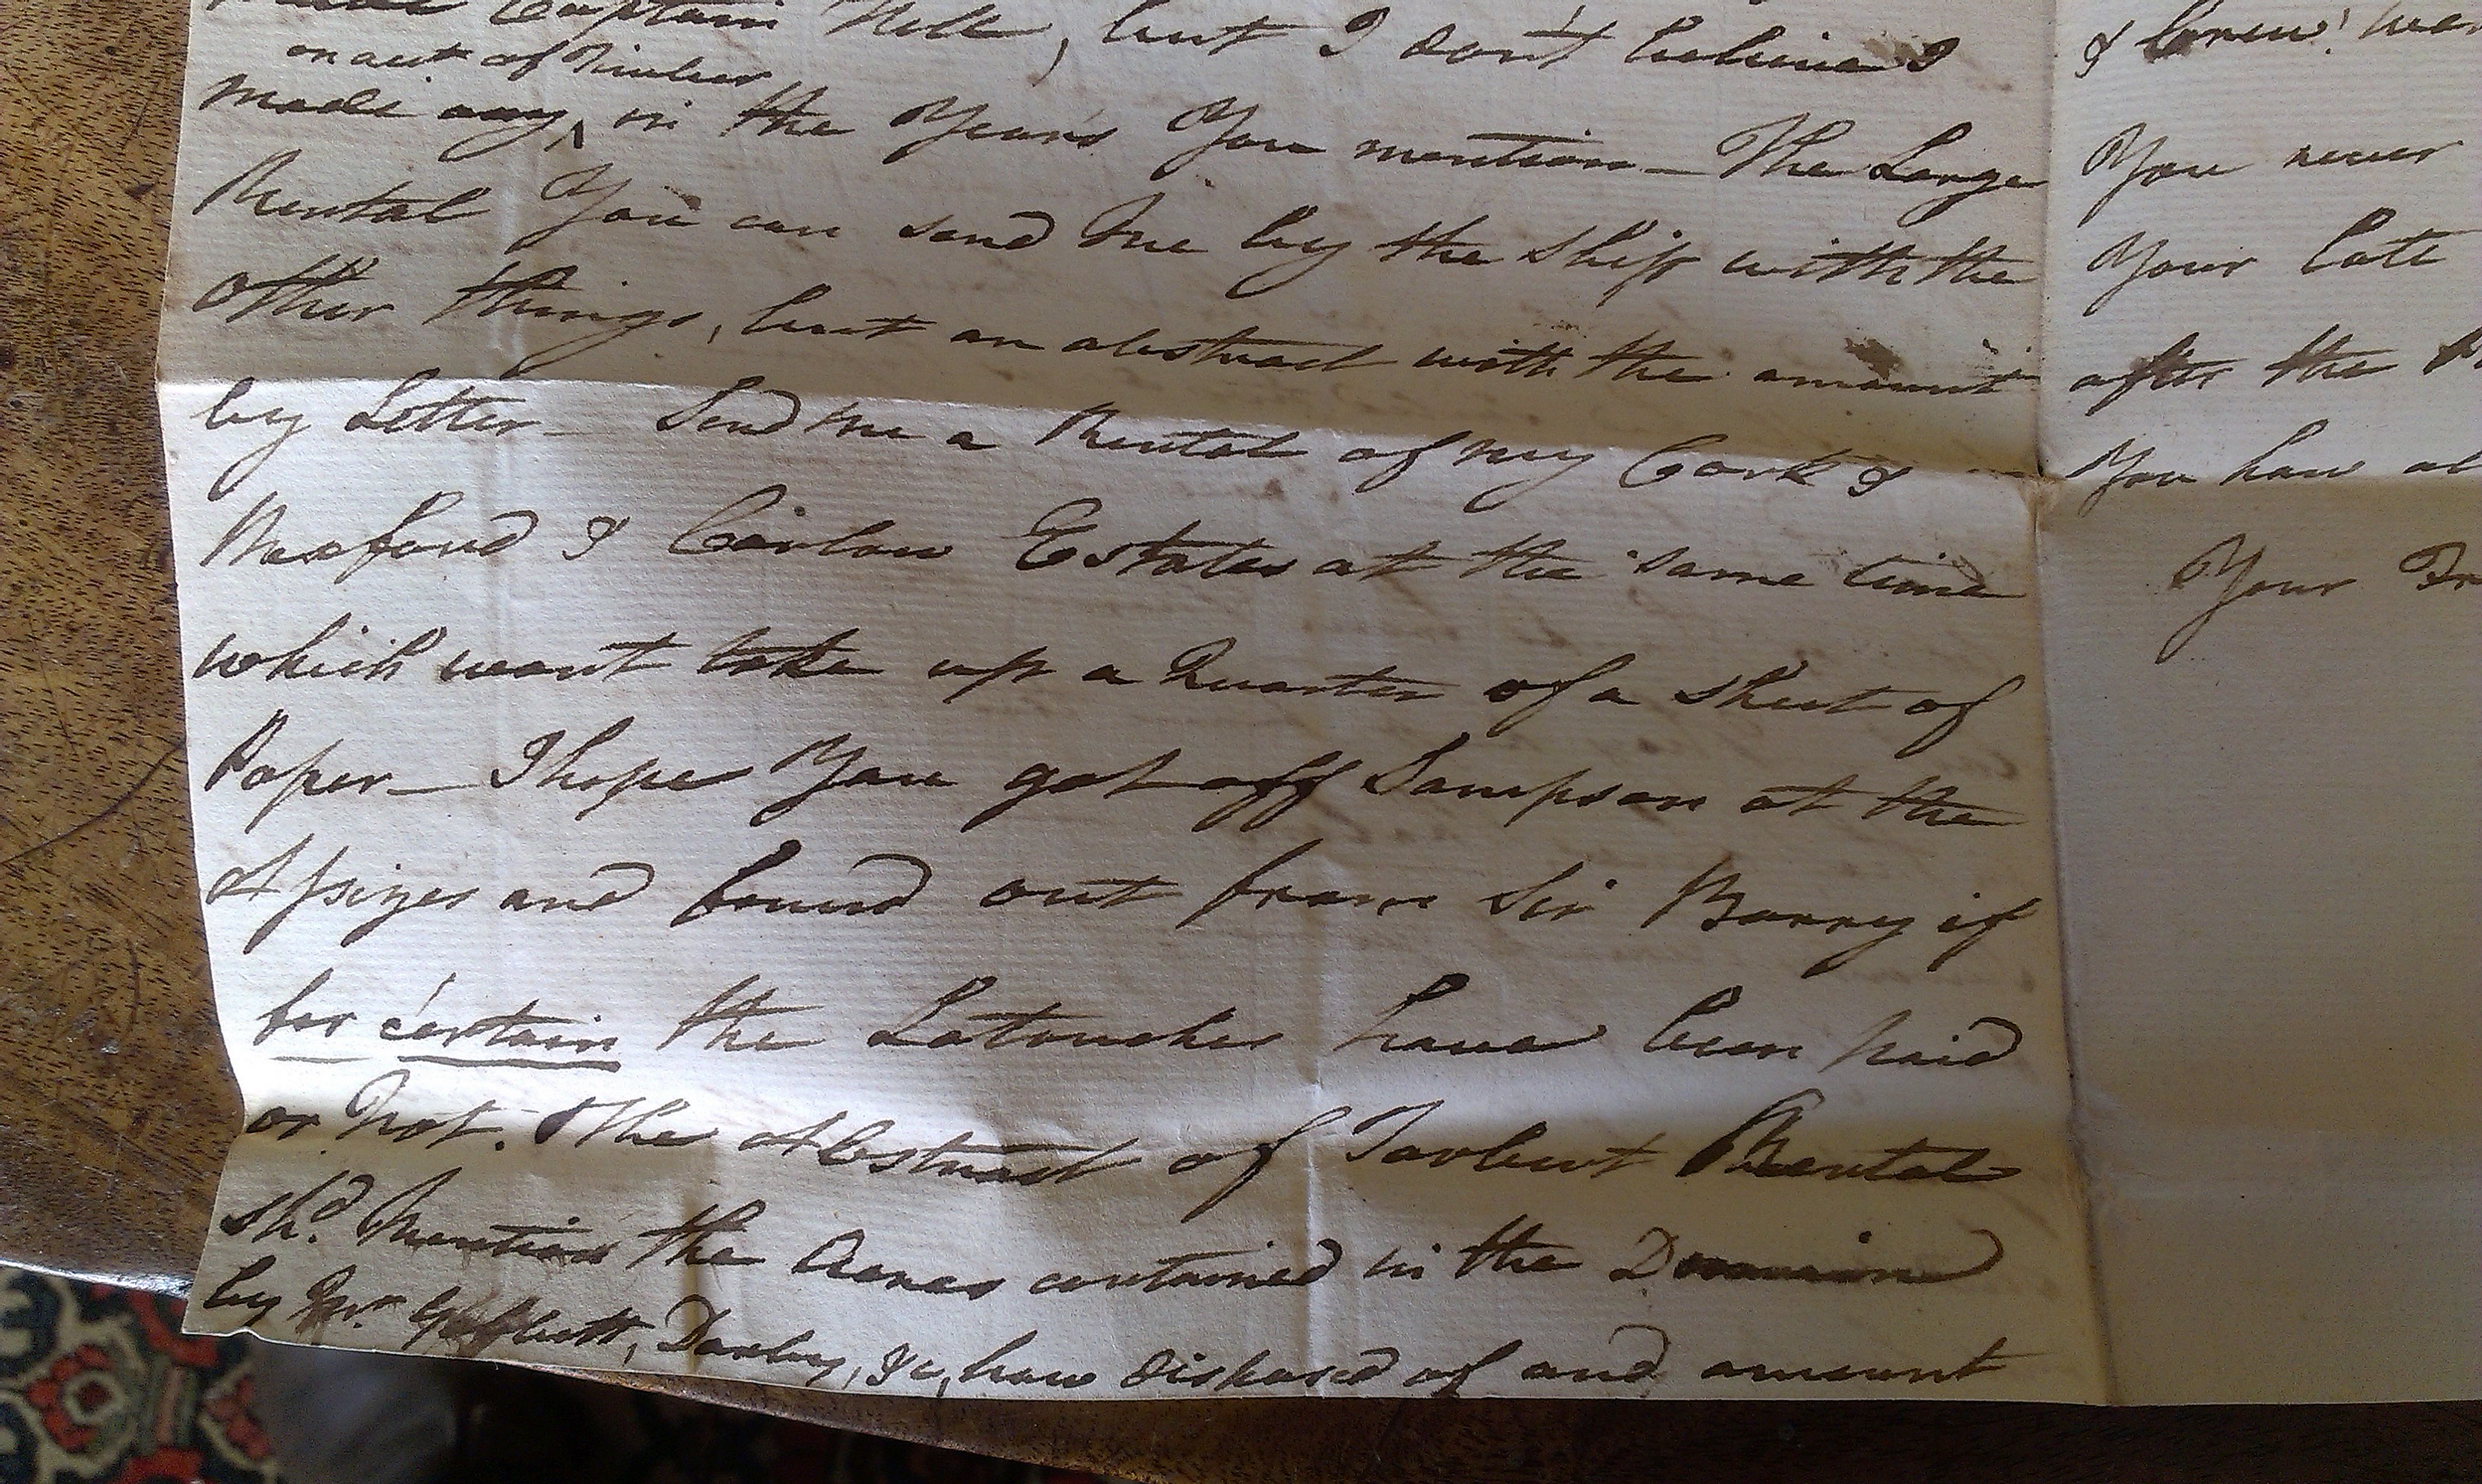 Captain Holt, but I don't believe I
on acct of Timber
made any ^ in the Years You mention — The Large
Rental You can send Me by the Ship with the
other things, but an abstract with the amount
by Letter — Send me a Rental of my Cork &
Wexford & Carlow Estates at the same time
which wont take up a Quarter of a Sheet of
Paper — I hope You got off Sampson at the
Assizes and found out from Sir Barry if
for certain the Latouches have been paid
or Not. The Abstract of Tarbert Rental
shd. Mention the Acres contained in the Domain
by Mr. Darby, &c, have disposed of and amount
& Crew
You never
Your late
after the
You have
Your